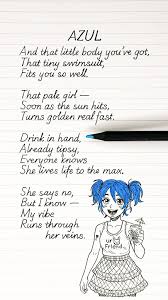 AZUL
And that little body you've got,
That tiny swimsuit,
Fits you so well.
That pale girl —
Soon as the sun hits,
Turns golden real fast.
Drink in hand,
Already tipsy,
Everyone knows
She lives life to the max.
She says no,
But I know —
My vibe
Runs through
her veins.